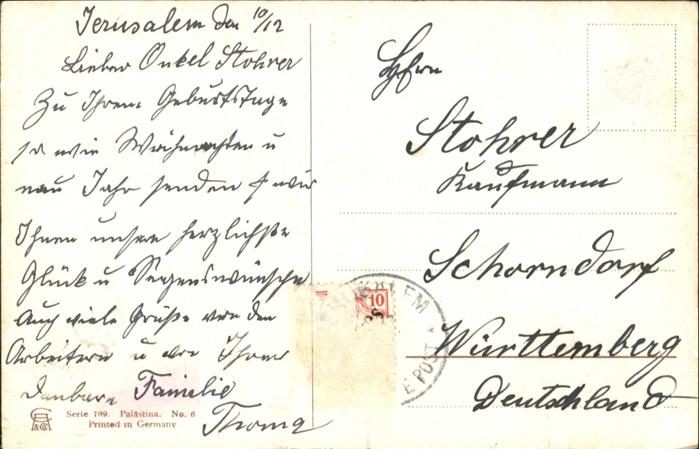 Jerusalem den 10/12
Lieber Onkel Stohrer
Zu Ihrem Geburtstage
so wie Weihnachten u
neu Jahr senden wir
Ihnen unsere herzlichste
Glück u Segenswünsche
Auch viele Grüße von den
Arbeitern u von Ihrer
Familie
Thoma
Serie 709. Palästina. No. 6
Printed in Germany
Herrn
Stohrer
Kaufmann
Schorndorf
Württemberg
Deutschland
10